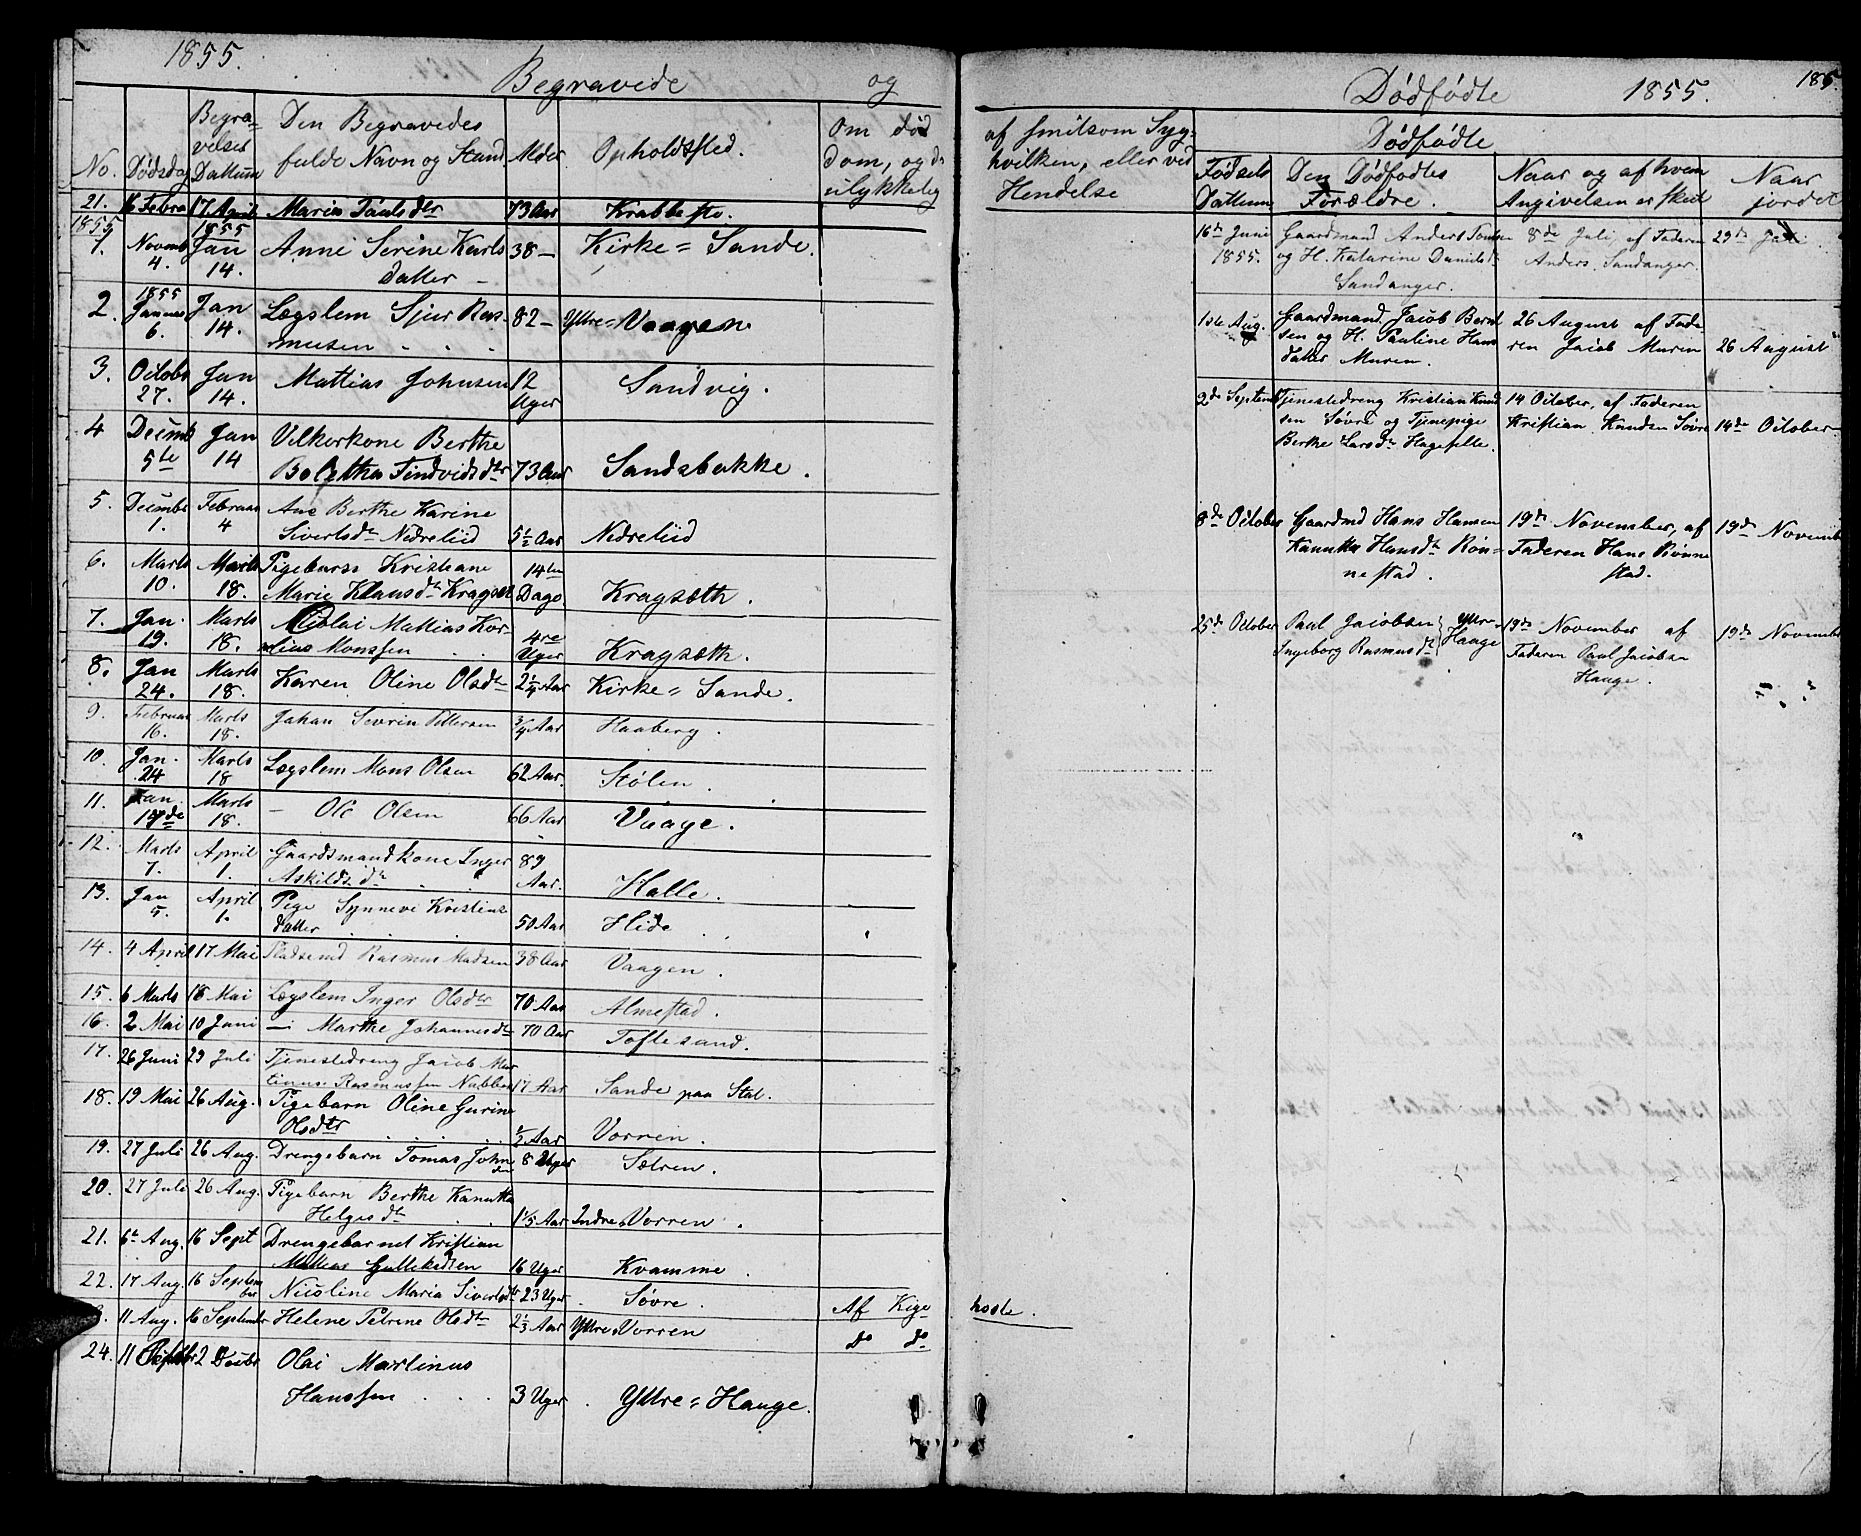 1855.
Begravede og
No. Dødsdag Begravelses Dattum Den Begravedes fulde Navn og Stand Alder Opholdsted. Om død
dom, og
ulykkelig
21. 16 Febra 17 April Marin Paulsdtr 73 Aar Krabbesto.
1855 1855
1. Novemb 4. Jan 14. Anne Serine Karls 38 - Kirke = Sande.
datter -
2. 1855 Januar 6. Jan 14. Lægslem Sjur Ras- 82 - Yttre = Vaagen
musen . . .
3. Octobr 27. Jan 14. Mattias Johnsen 12 Uger Sandvig.
4 Decemb 5te Jan 14 Vilkorkone Berthe
Boletha Findvidsdtr 73 Aar Sandsbakke.
5. Decembr 1. Februar 4 Ane Berthe Karine
Sivertsdtr Nedreliid 5½ Aar Nedreliid
6. Marts 10. Marts 18. Pigebarn Kristiane
Marie Klausdtr Kragset 14ten Dage. Kragsæth.
7. Jan. 19. Marts 18. Nicolai Mattias Kor-
nelius Monssen 4re Uger Kragsæth.
8. Jan 24. Marts 18. Karen Oline Olsdtr 2¼ Aar Kirke = Sande.
9. Februar 16. Marts 18. Johan Severin Pettersen ¾ Aar Haaberg.
10. Jan. 24 Marts 18 Lægslem Mons Olsen 62 Aar. Stølen.
11. Jan. 14de Marts 18. - Ole Olsen 66 Aar Vaage.
12. Marts 7. April 1. Gaardsmandkone Inger 89
Askildsdtr Aar. Halle.
13. Jan 5. April 1. Pige Synneve Kristians
datter 50 Aar Hide
14. 4 April 17 Mai Pladsemd Rasmus Madsen 38 Aar Vaagen.
15. 6 Marts 18 Mai Lægslem Inger Olsdtr 70 Aar Almestad.
16. 2 Mai 10 Juni - Marthe Johannesdtr 70 Aar Toftesand.
17. 26 Juni 29 Juli Tjenestedreng Jacob Mar
tinus Rasmussen Nubben 17 Aar Sande paa Stat.
18. 19 Mai 26 Aug. Pigebarn Oline Gurine
Olsdtr ½ Aar Vorren.
19. 27 Juli 26 Aug. Drengebarn Tomas John 8 Uger Sætren.
20. 27 Juli 26 Aug. Pigebarn Berthe Kanutta
Helgesdtr 1⅕ Aar Indre Vorren.
21. 6te Aug. 16 Sept Drengebarnet Kristian
Mattias Gulleksen 16 Uger Kvamme.
22. 17 Aug. 16 September Nicoline Maria Sivertsdtr 23 Uger. Søvre. Af Kige
11 Aug. 16 September Helene Petrine Olsdtr 2⅓ Aar Yttre Vorren do do
24. 11 Septbr 2 Decbr Olai Martinus
Hanssen 3 Uger. Yttre = Hauge.
185
Dødfødte 1855.
af smitsom Syg-
hvilken, eller ved
Hendelse
hoste.
Dødfødte
Fødsels Dattum Den Dødfødtes Forældre. Naar og af hvem Angivelsen er skeet Naar jordet
16de Juni 1855. Gaardmand Anders
og H. Katarine Danielsdtr
Sandanger. 8de Juli, af Faderen
Anders Sandanger. 29de Juli.
1ste Aug. Gaardmand Jacob Bernt
sen og H. Pauline Hans
datter Muren. 26 August af Fade
ren Jacob Murin 26 August
2de Septemb Tjenestedreng Kristian Knud
sen Søvre og Tjenepige
Berthe Larsdtr Hagefelle. 14 October, af Faderen
Kristian Knudsen Søvre 14de October
8de October Gaardmd Hans Hansen
Kanutta Hansdtr Røn=
nestad. 19de November, af
Faderen Hans Rønne
stad. 19de Novemb
25de October Paul Jacobsen
Ingeborg Rasmusdtr Yttre-
Hauge 19de November af
Faderen Paul Jacobsen
Hauge. 19de Novemb